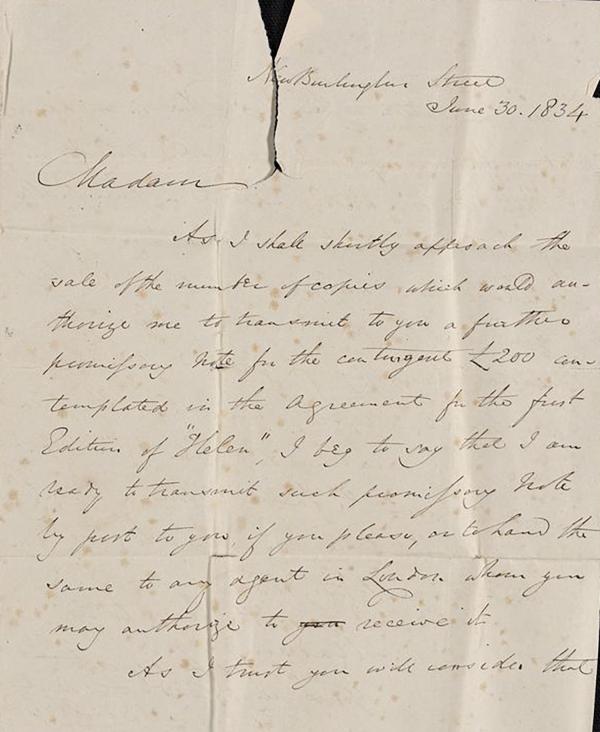 New Burlington Street
June 30. 1834
Madam
As I shall shortly approach the
sale of the number of copies which would au-
thorize me to transmit to you a further
promissory Note for the contingent £200 con-
templated in the Agreement for the first
Edition of "Helen", I beg to say that I am
ready to transmit such promissory Note
by post to you, if you please, or to hand the
same to any agent in London whom you
may authorize to you receive it
As I trust you will consider that